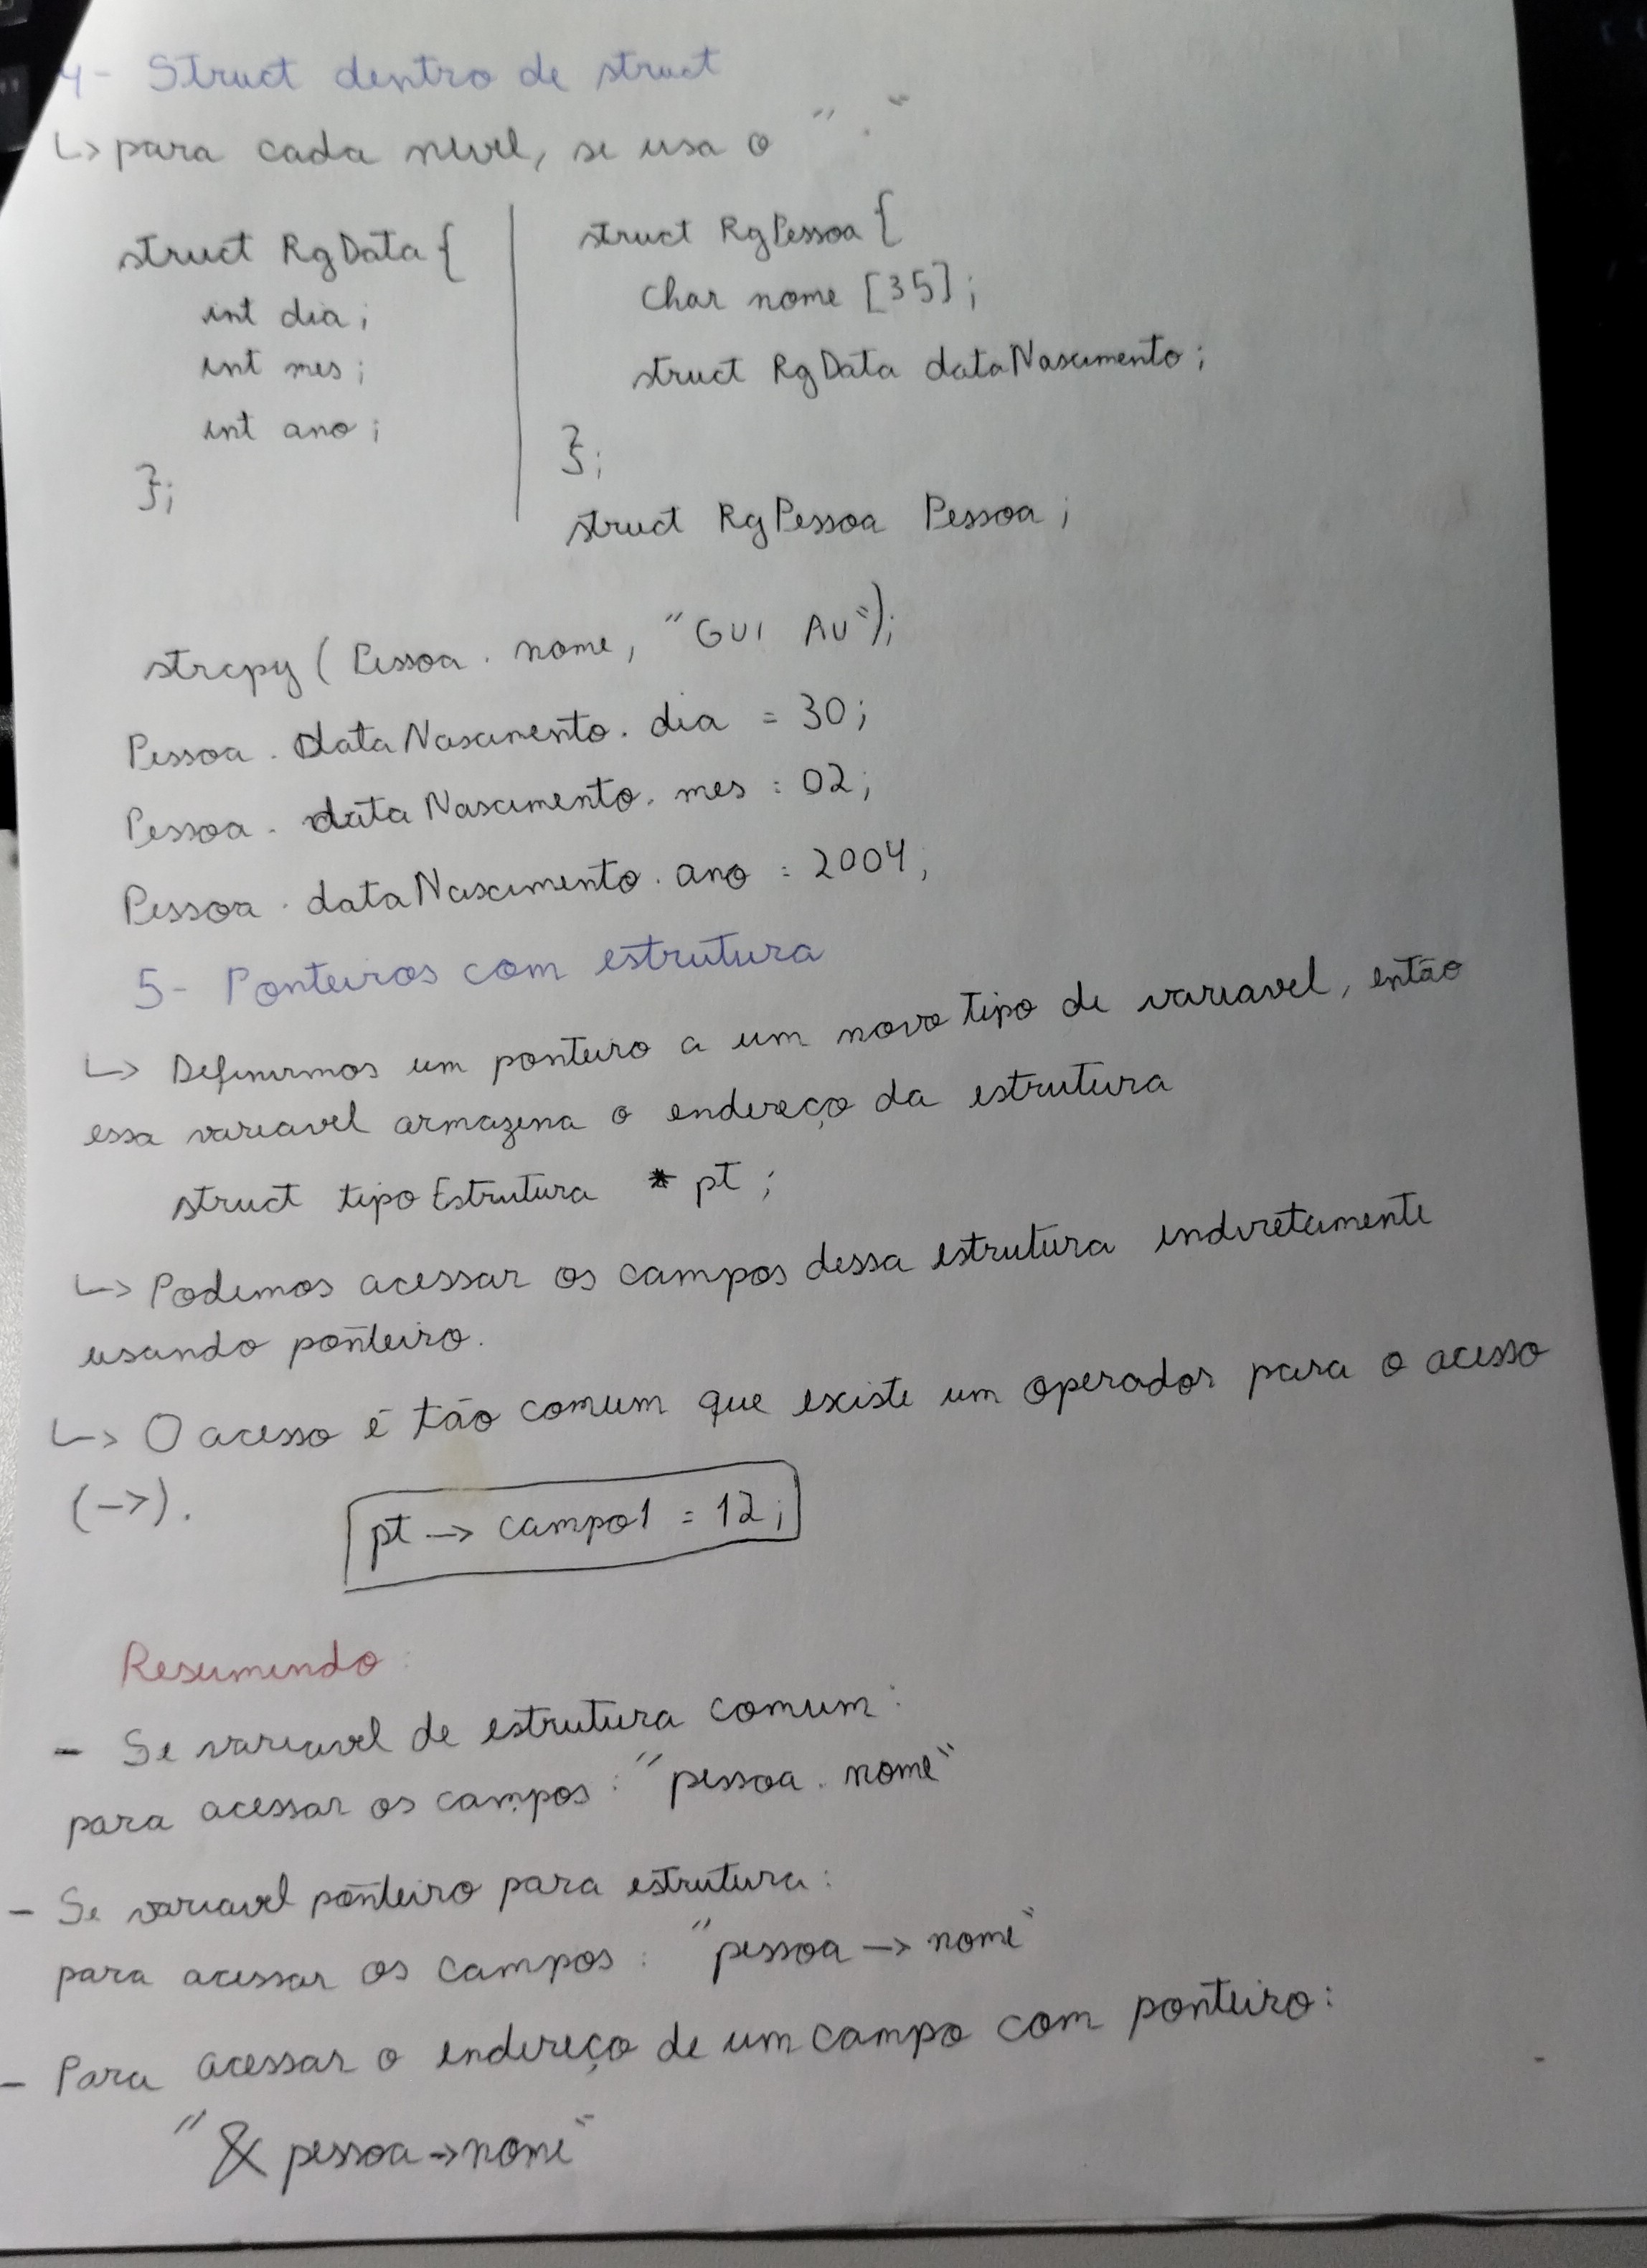 4- Struct dentro de struct
↳ para cada nível, se usa o "."
struct RgData {
int dia;
int mes;
int ano;
};
struct RgPessoa {
char nome [35];
struct RgData dataNascimento;
};
struct RgPessoa Pessoa;
strcpy (Pessoa . nome, "GUI AU");
Pessoa . dataNascimento. dia = 30;
Pessoa . dataNascimento. mes = 02;
Pessoa . dataNascimento. ano = 2004;
5- Ponteiros com estrutura
↳ Definirmos um ponteiro a um novo tipo de variavel, então
essa variavel armazena o endereço da estrutura
struct tipoEstrutura * pt;
↳ Podemos acessar os campos dessa estrutura indiretamente
usando ponteiro.
↳ O acesso é tão comum que existe um operador para o acesso
(->).
pt -> campo1 = 12;
Resumindo:
- Se variavel de estrutura comum:
para acessar os campos: "pessoa . nome"
- Se variavel ponteiro para estrutura:
para acessar os campos: "pessoa -> nome"
- Para acessar o endereço de um campo com ponteiro:
"& pessoa -> nome"